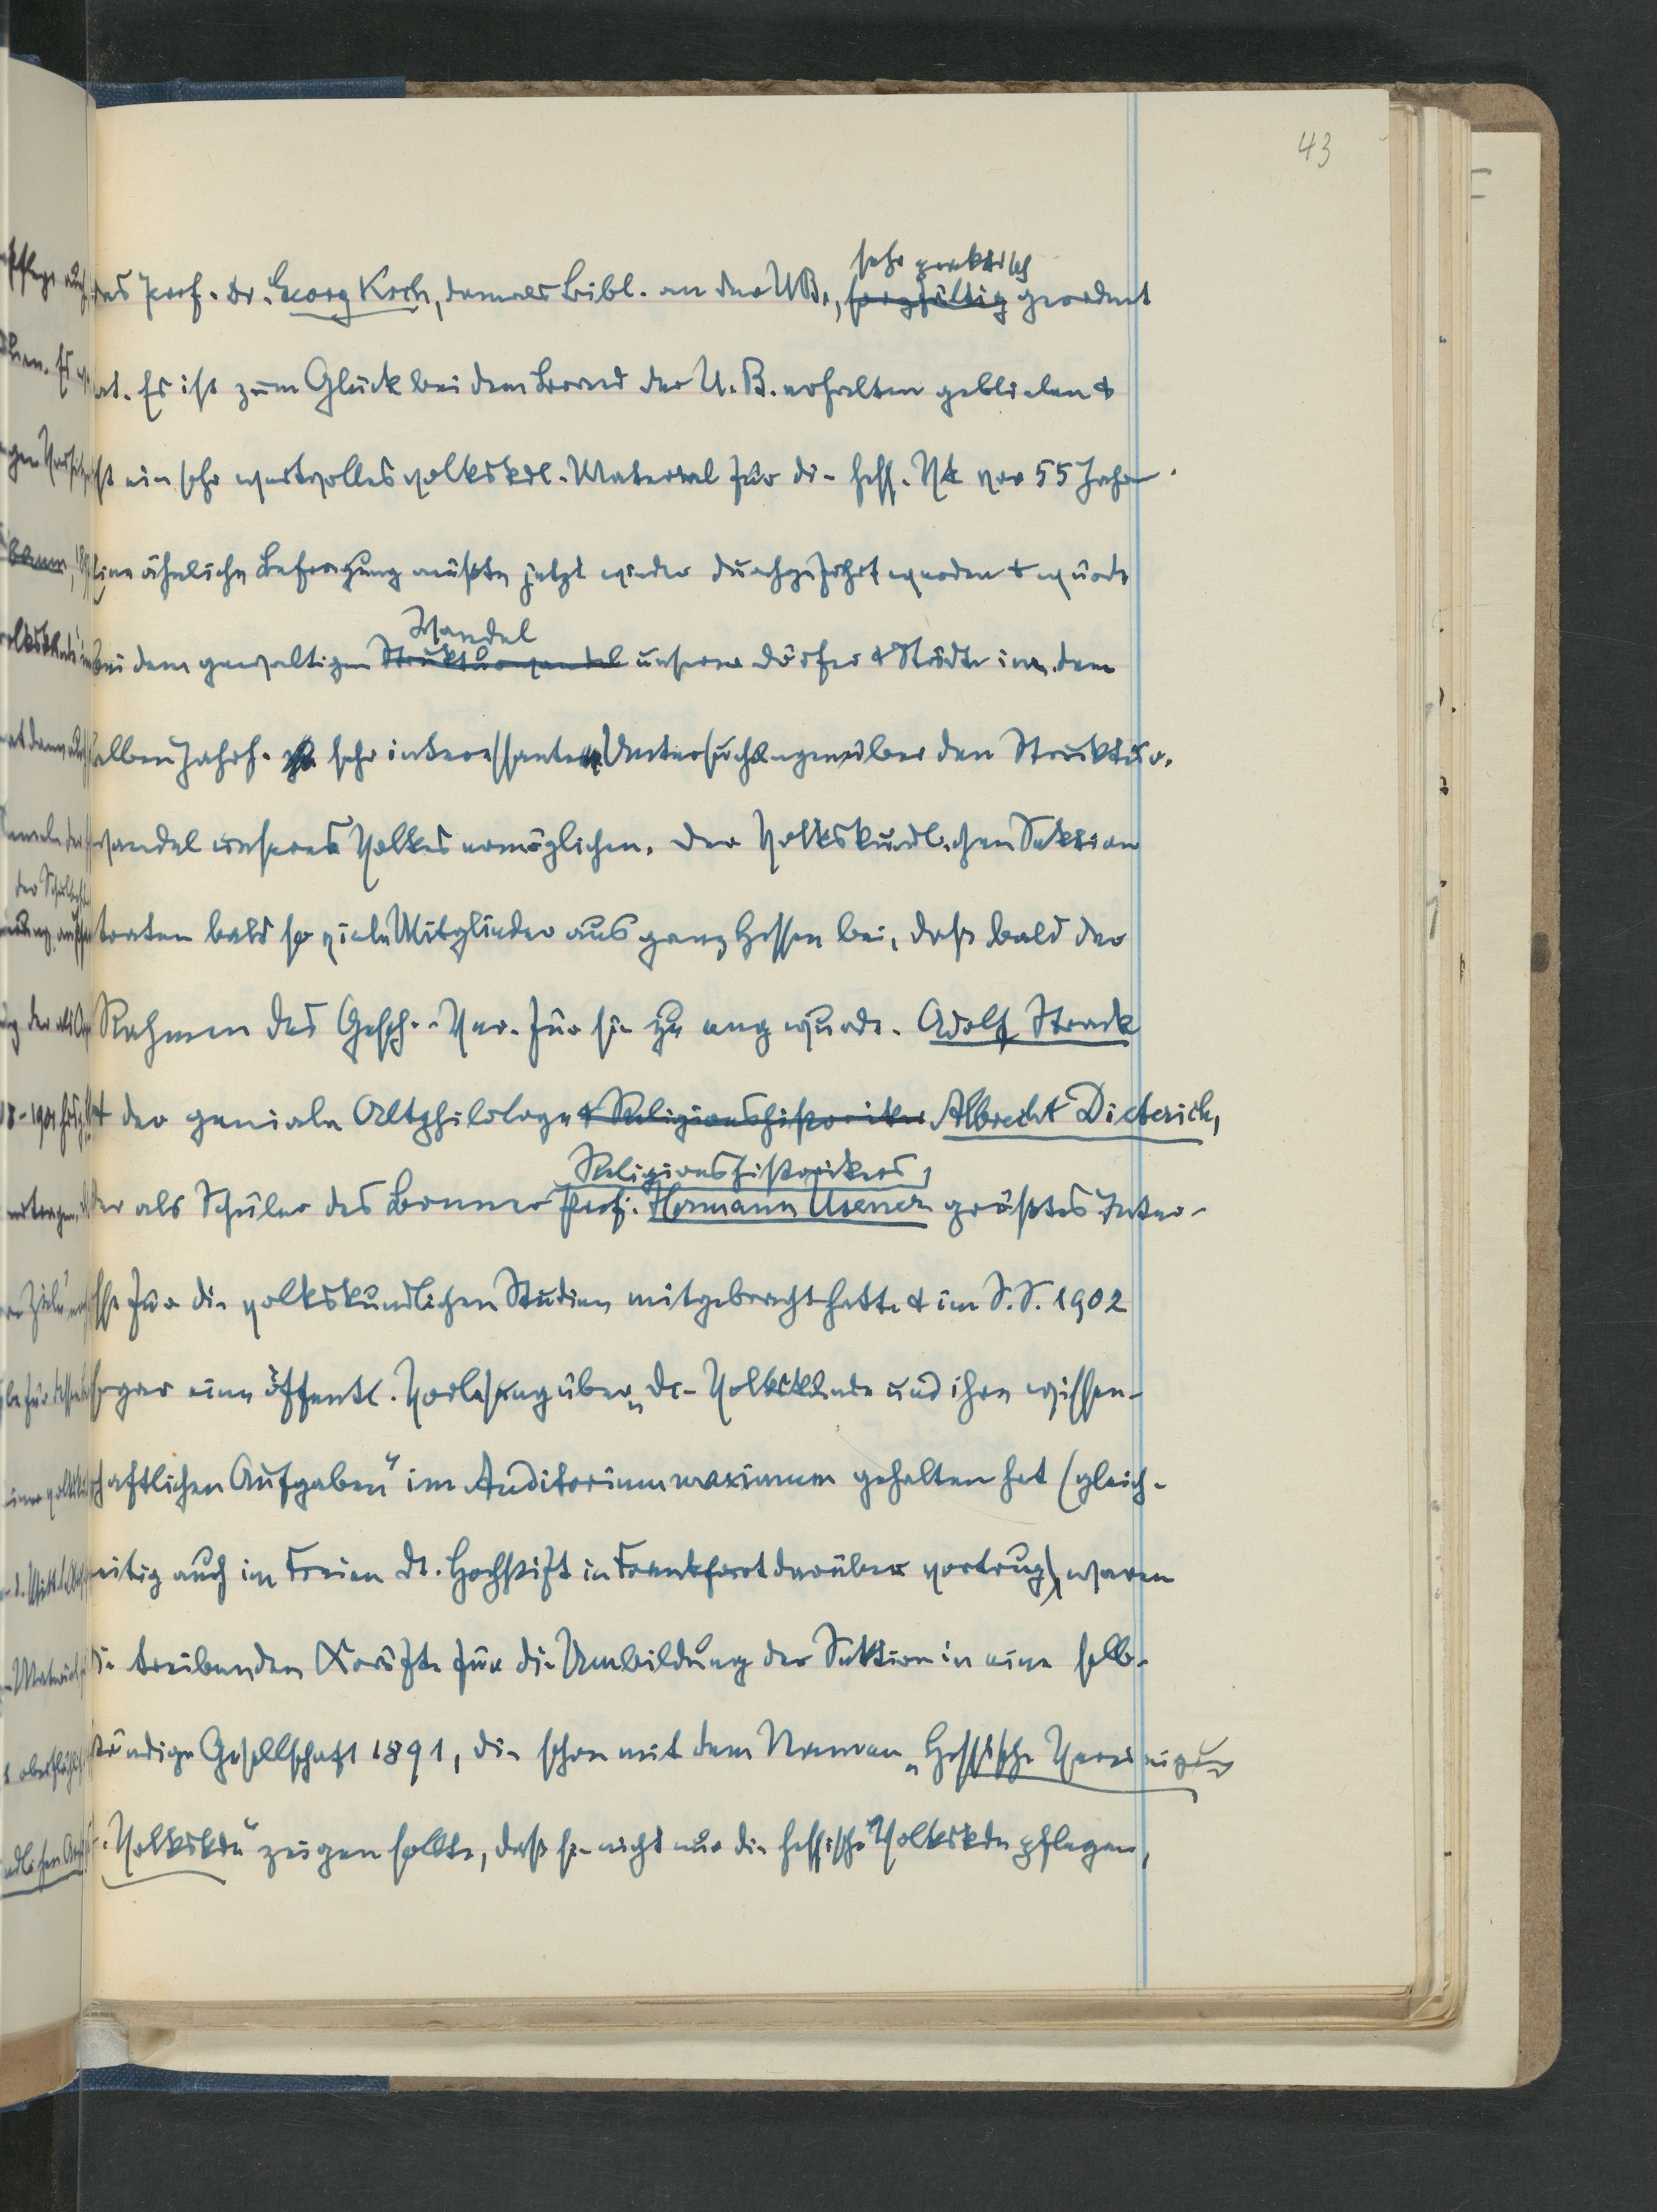 43
das Prof. Dr. Georg Koch, damals Bibl. an der UB., sehr praktisch geordnet
hat. Es ist zum Glück bei dem Brand der U.B. erhalten geblieben &
ist ein sehr wertvolles volkskdl. Material für die hess. Vk vor 55 Jahren.
Eine ähnliche Befragung müßte jetzt wieder durchgeführt werden & würde
bei dem gewaltigen Wandel unserer Dörfer & Städte in dem
halben Jahrh. sehr interessante Untersuchungen über den Struktur-
wandel unseres Volkes ermöglichen. Der Volkskundlichen Sektion
traten bald so viele Mitglieder aus ganz Hessen bei, daß bald der
Rahmen des Gesch.-Ver. für sie zu eng wurde. Adolf Strack
& der geniale Altphilologe & Religionshistoriker Albrecht Dieterich,
der als Schüler des Bonner Religionshistorikers, Prof. Hermann Usener größtes Inter-
esse für die volkskundlichen Studien mitgebracht hatte & im S.S. 1902
sogar eine öffentl. Vorlesung über „Die Volkskunde und ihre wissen-
schaftlichen Aufgaben" im Auditorium maximum gehalten hat (gleich-
zeitig auch im Freien Dt. Hochstift in Frankfurt darüber vortrug), waren
die treibenden Kräfte für die Umbildung der Sektion in eine selb-
ständige Gesellschaft 1891, die schon mit dem Namen „Hessische Vereinigung
f. Volkskde" zeigen sollte, daß sie nicht nur die hessische Volkskde pflegen,